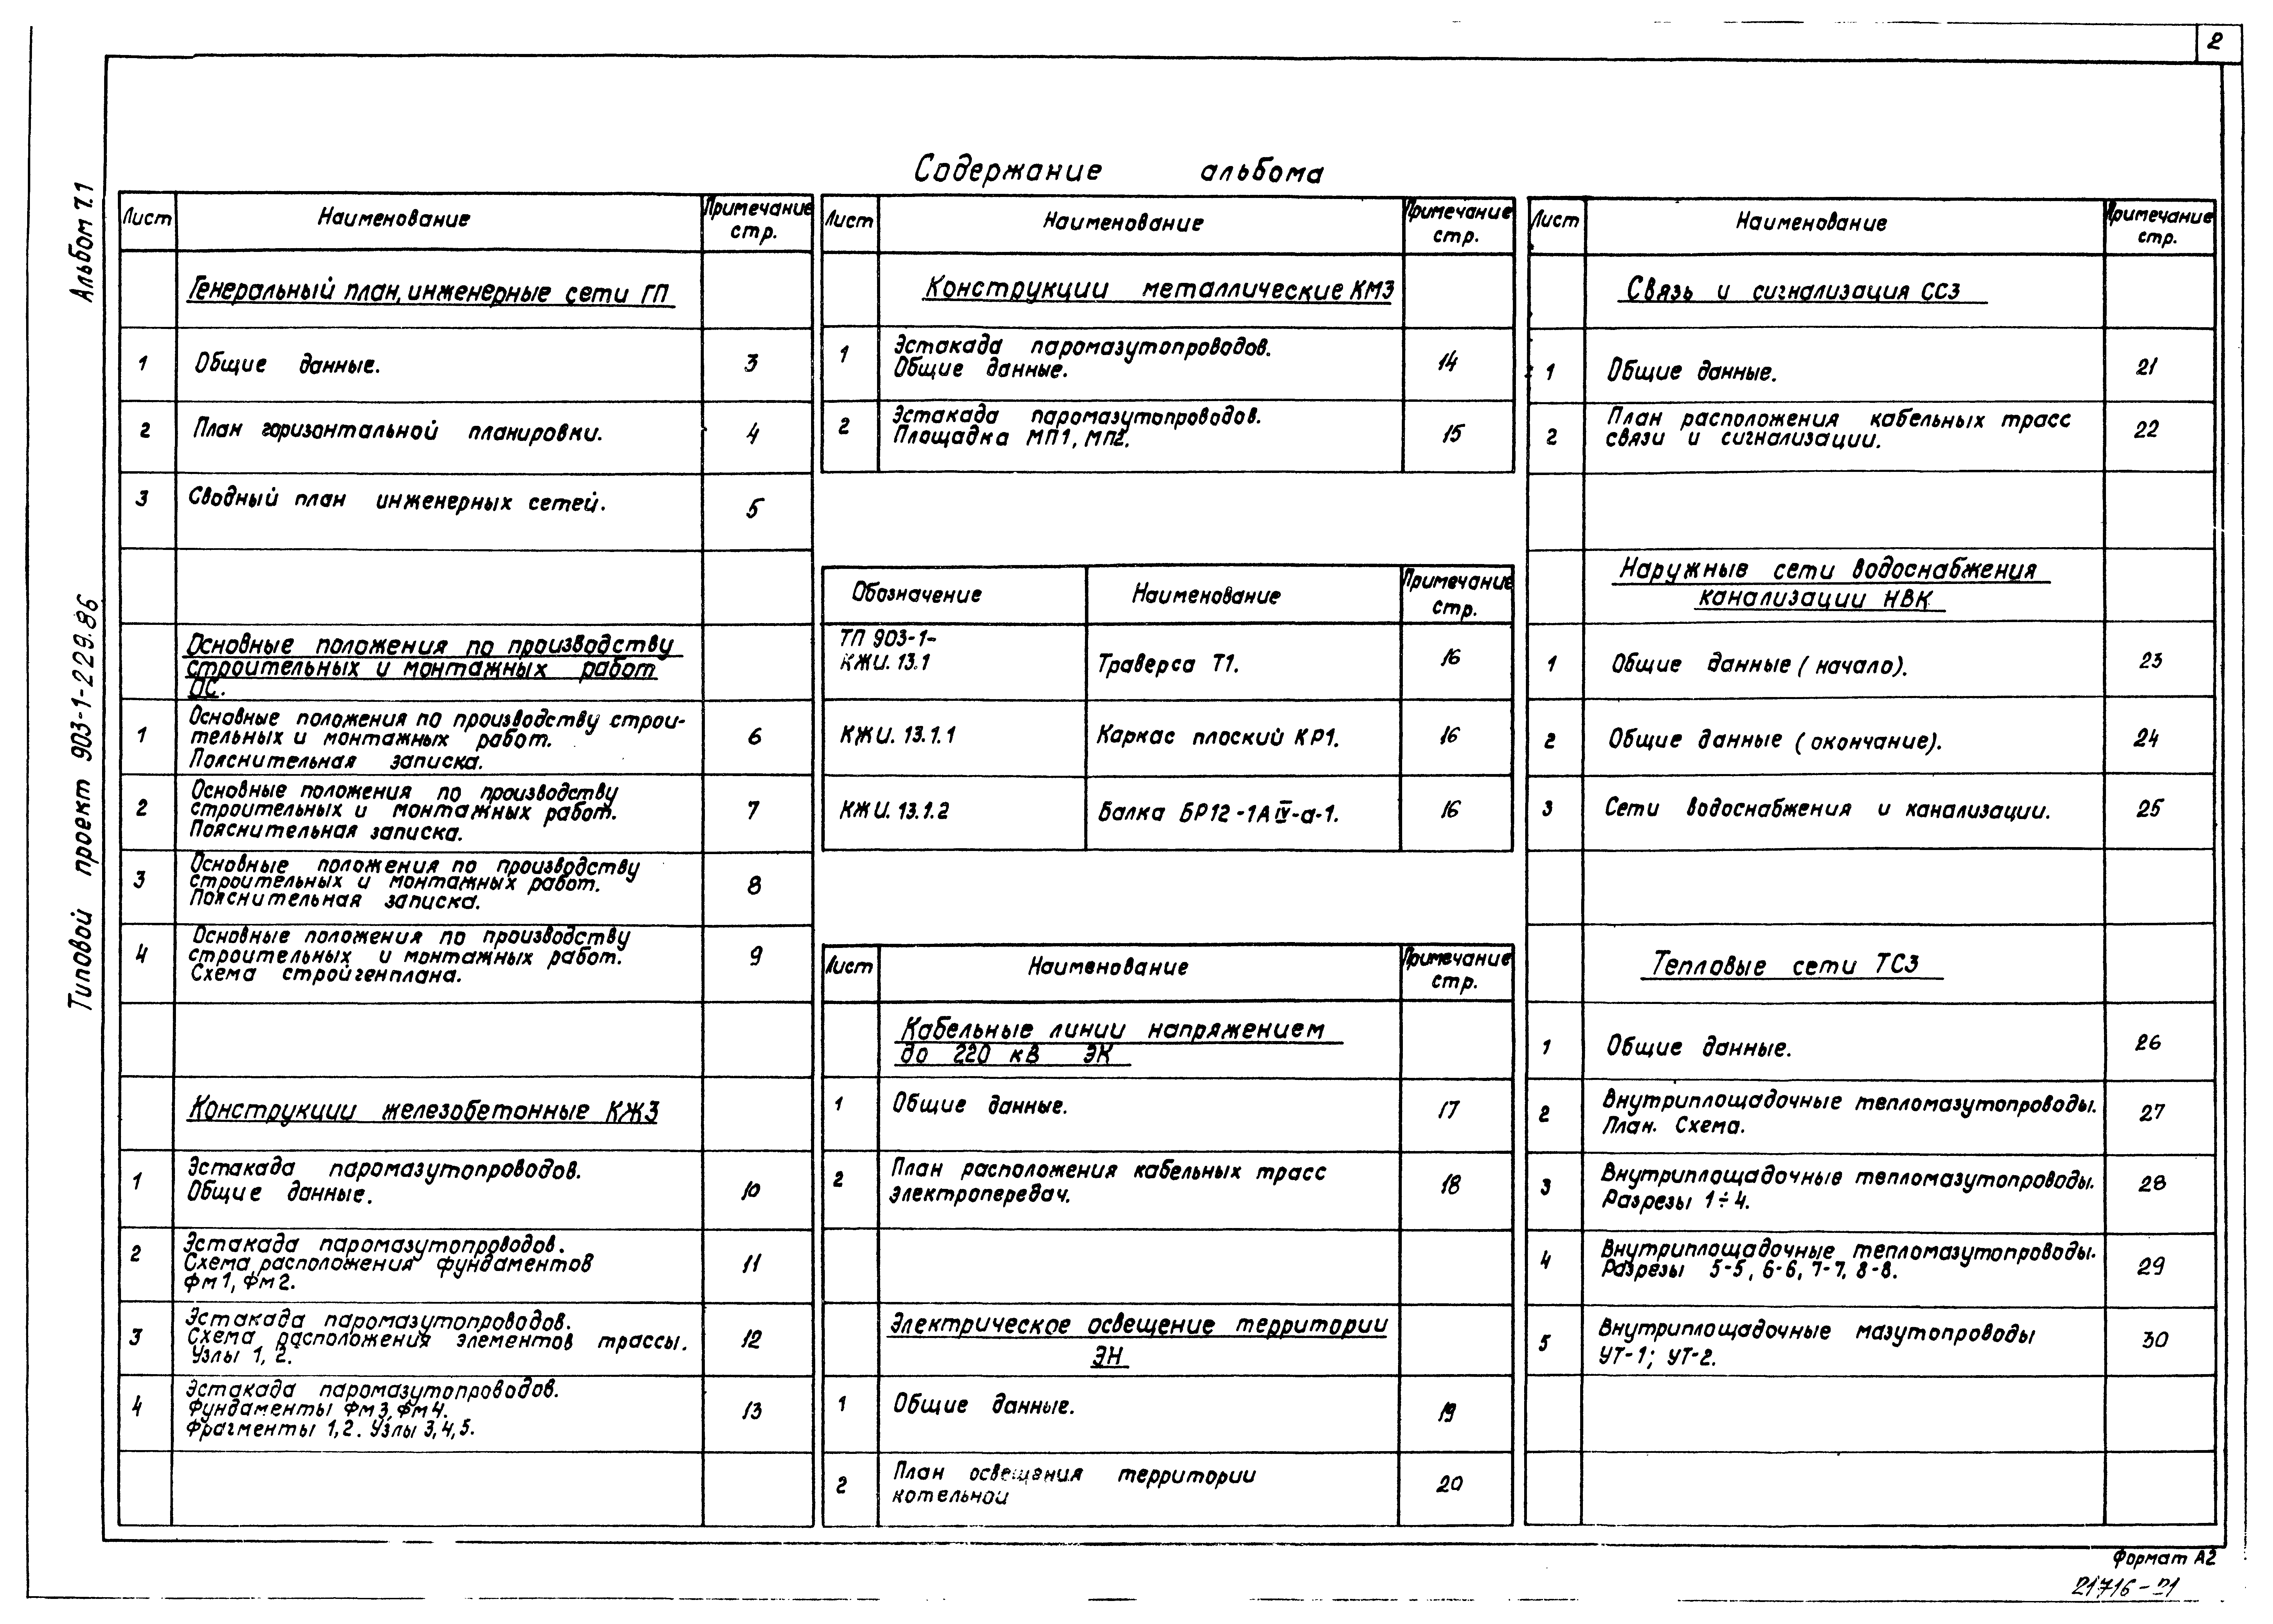 2
Альбом 7.1
Типовой проект 903-1-229.86
Содержание альбома
Лист Наименование Примечание стр.
Генеральный план, инженерные сети ГП
1 Общие данные. 3
2 План горизонтальной планировки. 4
3 Сводный план инженерных сетей. 5
Основные положения по производству
строительных и монтажных работ
ОС.
1 Основные положения по производству строи-
тельных и монтажных работ. 6
Пояснительная записка.
2 Основные положения по производству
строительных и монтажных работ. 7
Пояснительная записка.
3 Основные положения по производству
строительных и монтажных работ. 8
Пояснительная записка.
4 Основные положения по производству
строительных и монтажных работ. 9
Схема стройгенплана.
Конструкции железобетонные КЖ3
1 Эстакада паромазутопроводов.
Общие данные. 10
2 Эстакада паромазутопроводов.
Схема расположения фундаментов 11
Фм1, Фм2.
3 Эстакада паромазутопроводов.
Схема расположения элементов трассы. 12
Узлы 1, 2.
4 Эстакада паромазутопроводов.
Фундаменты Фм3, Фм4. 13
Фрагменты 1,2. Узлы 3,4,5.
Лист Наименование Примечание стр.
Конструкции металлические КМ3
1 Эстакада паромазутопроводов.
Общие данные. 14
2 Эстакада паромазутопроводов.
Площадка МП1, МП2. 15
Обозначение Наименование Примечание стр.
ТП 903-1-
КЖИ. 13.1 Траверса Т1. 16
КЖИ. 13.1.1 Каркас плоский КР1. 16
КЖИ. 13.1.2 Балка БР12-1АIV-а-1. 16
Лист Наименование Примечание стр.
Кабельные линии напряжением
до 220 кВ ЭК
1 Общие данные. 17
2 План расположения кабельных трасс
электропередач. 18
Электрическое освещение территории
ЭН
1 Общие данные. 19
2 План освещения территории
котельной 20
Лист Наименование Примечание стр.
Связь и сигнализация СС3
1 Общие данные. 21
2 План расположения кабельных трасс
связи и сигнализации. 22
Наружные сети водоснабжения
канализации НВК
1 Общие данные (начало). 23
2 Общие данные (окончание). 24
3 Сети водоснабжения и канализации. 25
Тепловые сети ТС3
1 Общие данные. 26
2 Внутриплощадочные тепломазутопроводы.
План. Схема. 27
3 Внутриплощадочные тепломазутопроводы.
Разрезы 1÷4. 28
4 Внутриплощадочные тепломазутопроводы.
Разрезы 5-5, 6-6, 7-7, 8-8. 29
5 Внутриплощадочные мазутопроводы
УТ-1; УТ-2. 30
Формат А2
21716-21